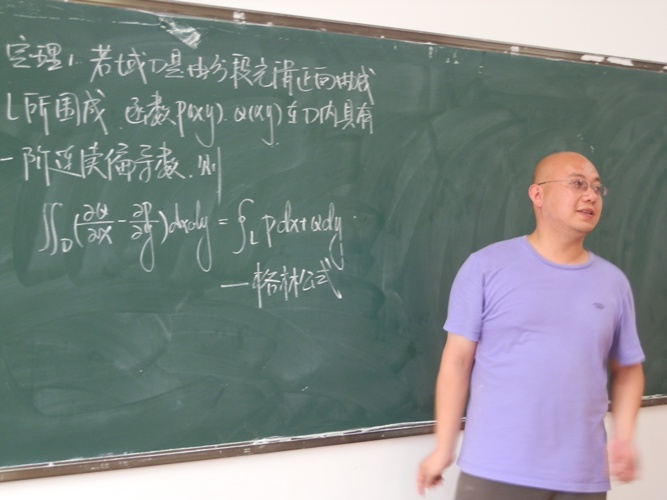 定理1. 若域D是由分段光滑正向曲线
L所围成. 函数P(x,y). Q(x,y)在D内具有
一阶连续偏导数. 则
∬_D(∂Q/∂x - ∂P/∂y)dxdy = ∮_L Pdx+Qdy.
—格林公式